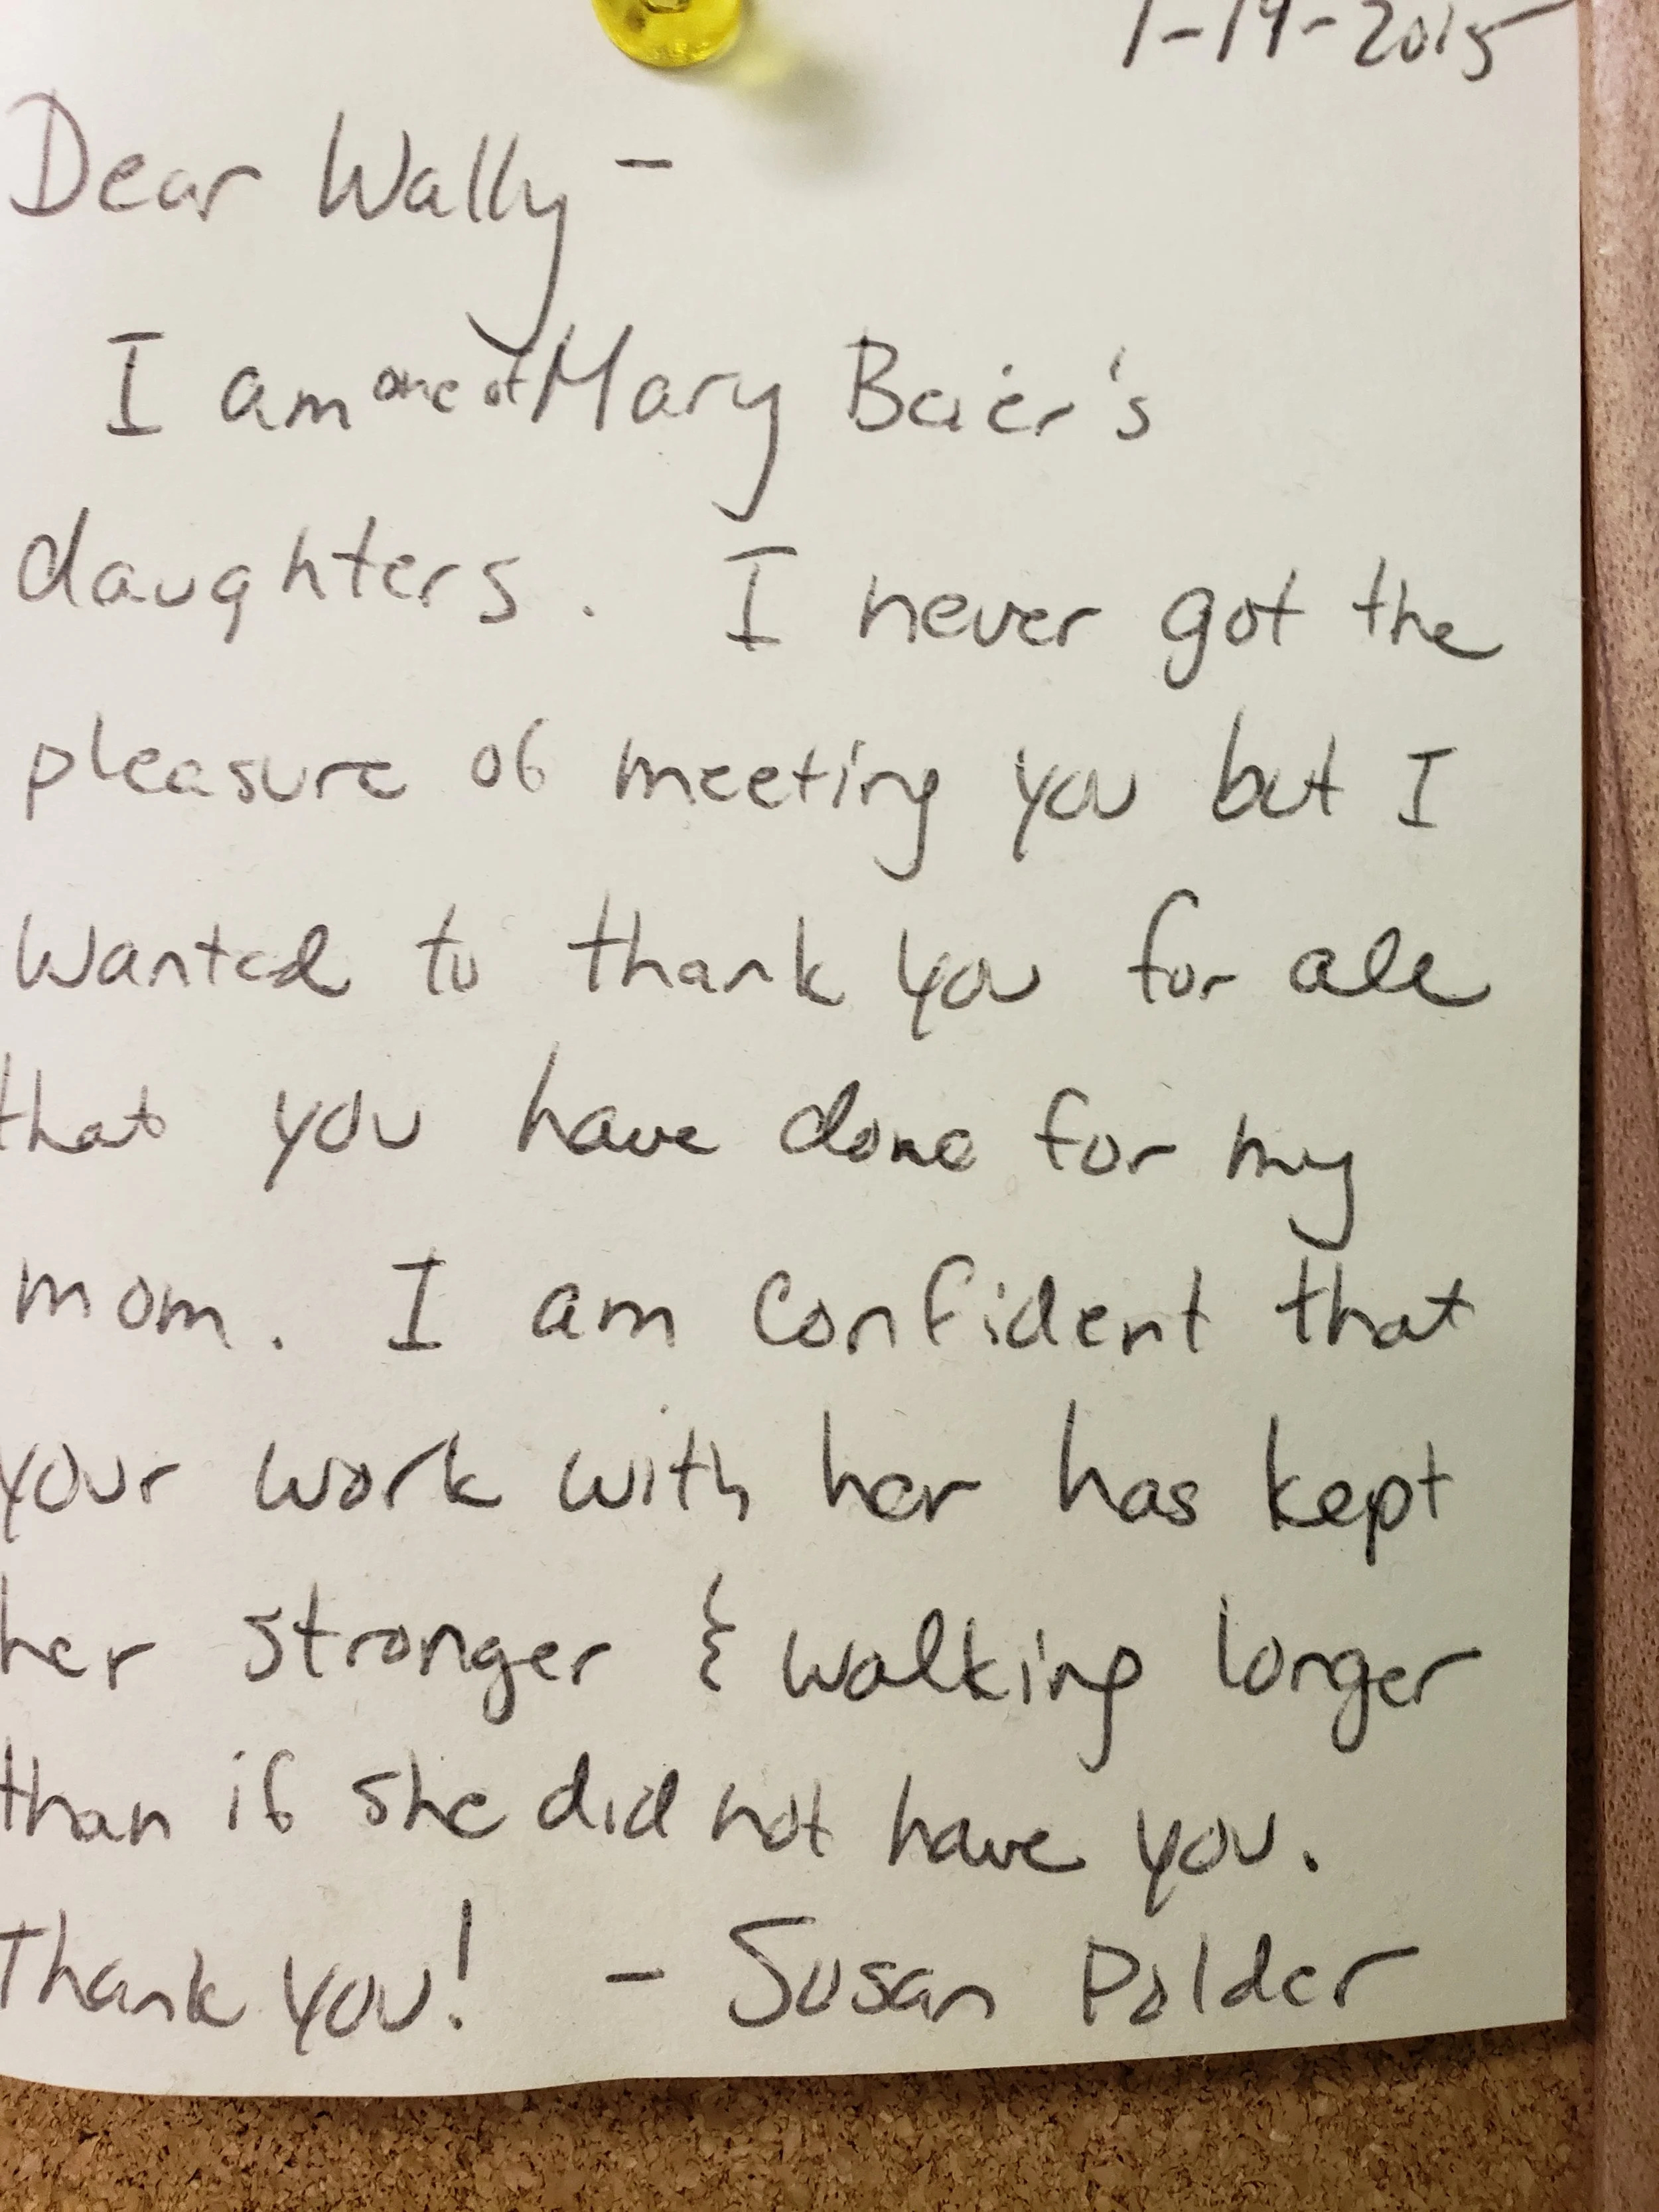 1-19-2015
Dear Wally -
I am one of Mary Baier's
daughters. I never got the
pleasure of meeting you but I
wanted to thank you for all
that you have done for my
mom. I am confident that
your work with her has kept
her stronger & walking longer
than if she did not have you.
Thank you! - Susan Polder